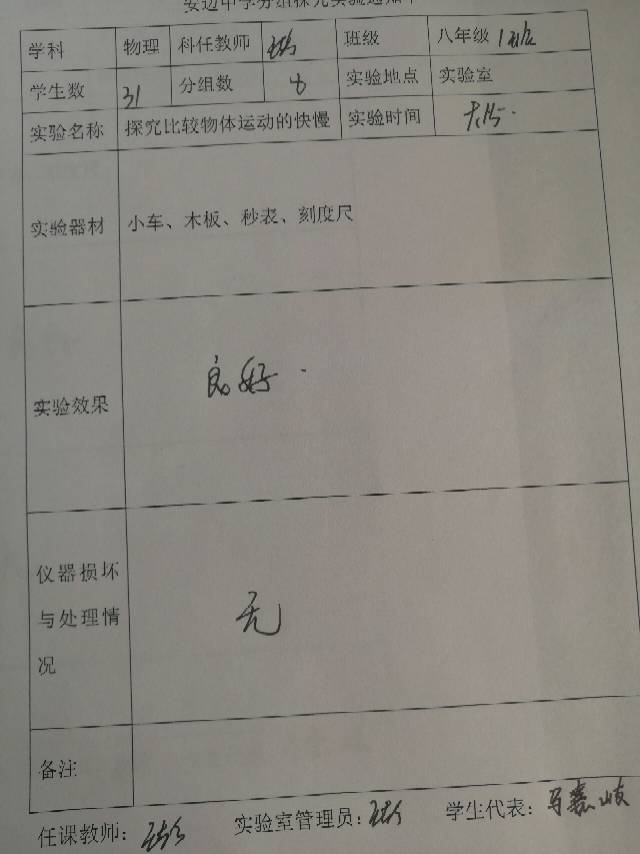 安边中学分组探究实验通知单
学科 物理 科任教师 班级 八年级 1班
学生数 31 分组数 8 实验地点 实验室
实验名称 探究比较物体运动的快慢 实验时间
实验器材 小车、木板、秒表、刻度尺
实验效果 良好.
仪器损坏
与处理情 无
况
备注
任课教师: 实验室管理员: 学生代表: